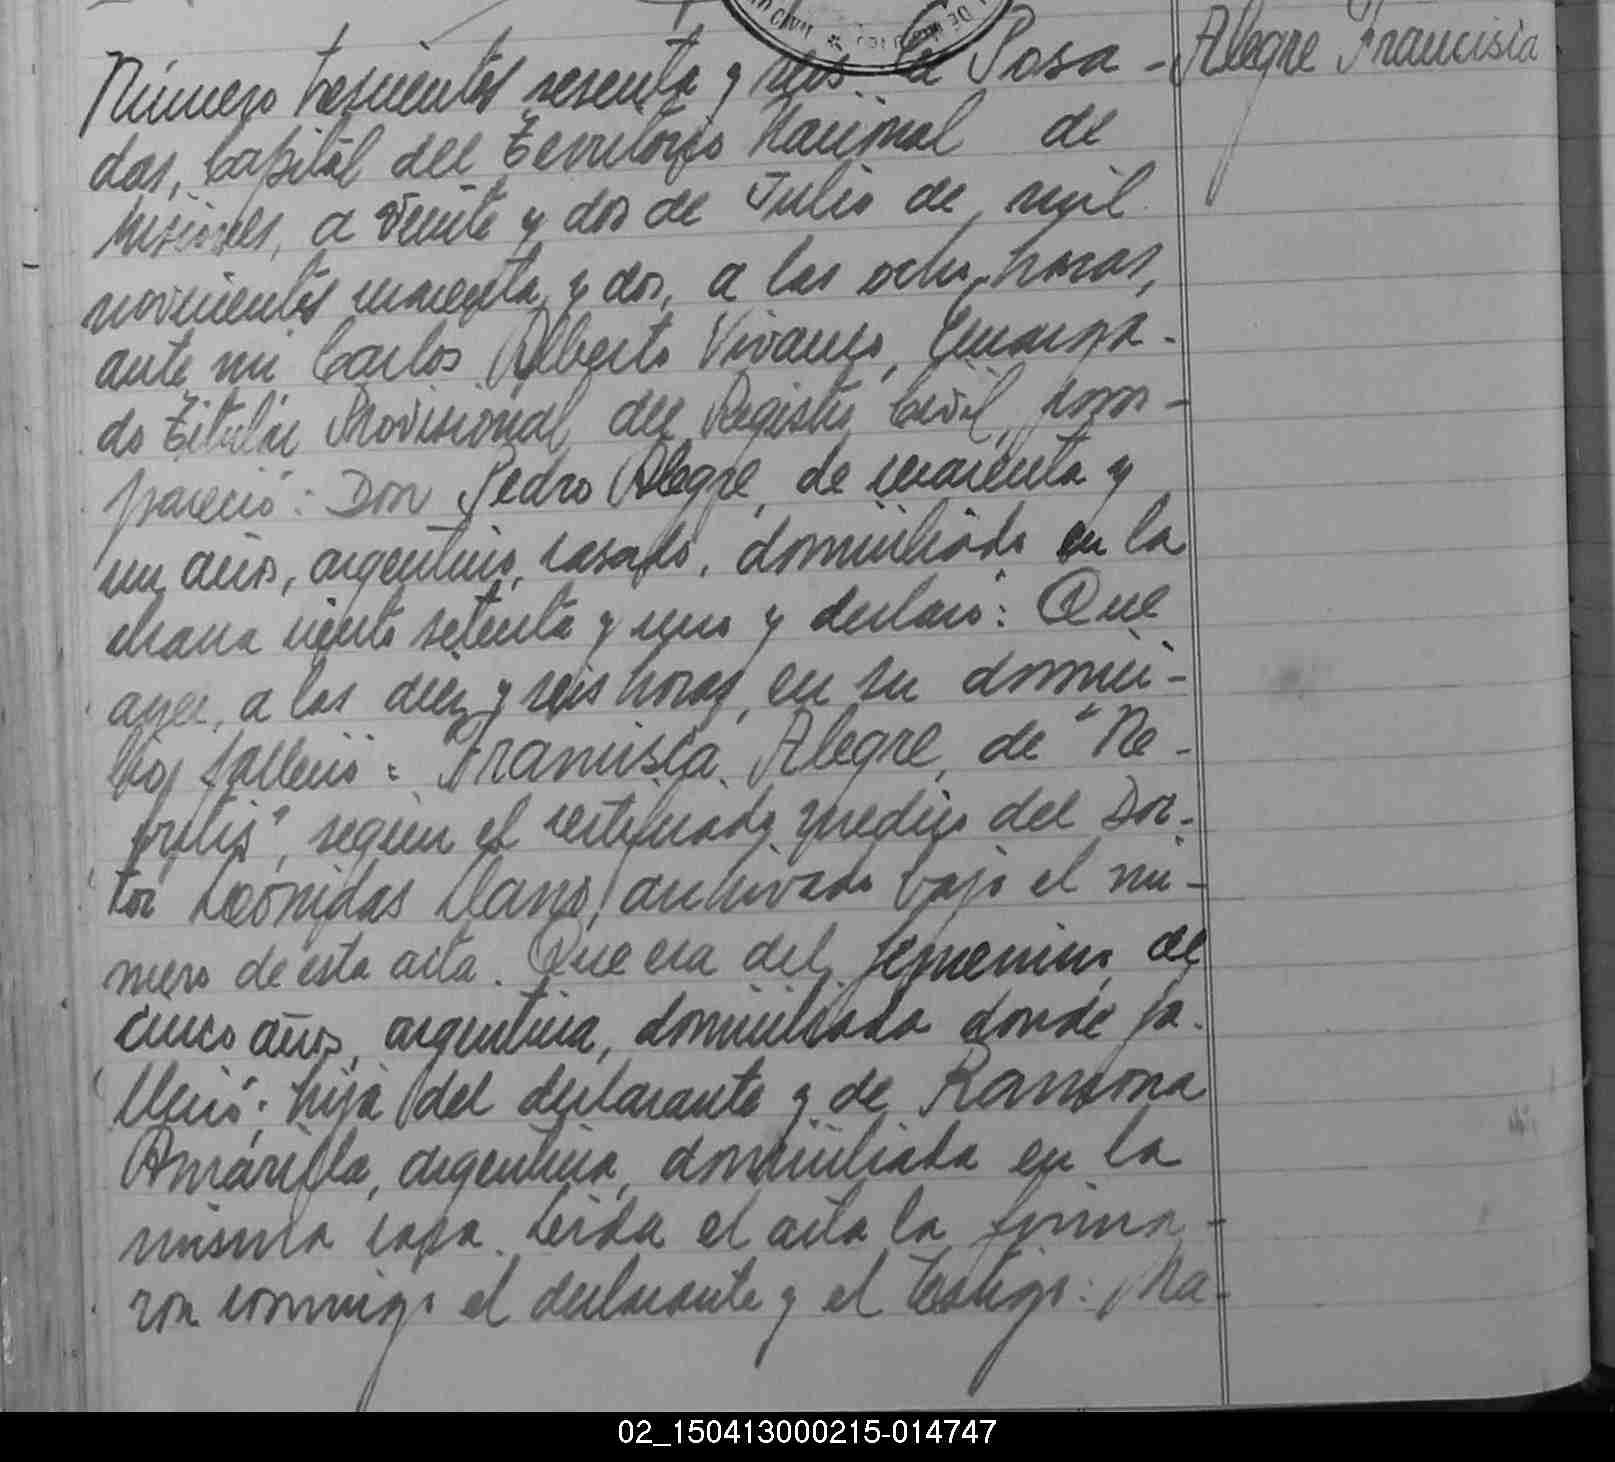 Alegre Francisca
Número trescientos sesenta y seis. En Posa-
das, Capital del Territorio Nacional de
Misiones, a veinte y dos de Julio de mil
novecientos cuarenta y dos, a las ocho horas,
ante mi Carlos Alberto Vivanco, Encarga-
do Titular Provisional del Registro Civil, com-
pareció: Don Pedro Alegre, de cuarenta y
un años, argentino, casado, domiciliado en la
chacra ciento setenta y uno y declaró: Que
ayer, a las diez y seis horas, en su domici-
lio, falleció: Francisca Alegre, de "Ne-
fritis", según el certificado médico del Doc-
tor Leonidas Llano, archivado bajo el nú-
mero de esta acta. Que era del femenino, de
cinco años, argentina, domiciliada donde fa-
lleció; hija del declarante y de Ramona
Amarilla, argentina, domiciliada en la
misma casa. Leida el acta la firma-
ron conmigo el declarante y el testigo: Ma-
02_150413000215-014747